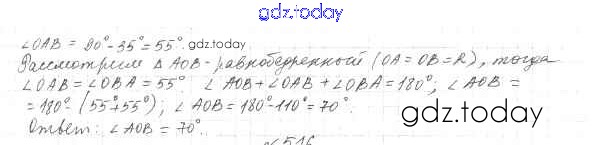 gdz.today
∠OAB = 90° - 35° = 55°. gdz.today
Рассмотрим Δ AOB - равнобедренный (OA = OB = R), тогда
∠OAB = ∠OBA = 55°. ∠ AOB + ∠OAB + ∠OBA = 180°; ∠AOB =
= 180° - (55° + 55°); ∠ AOB = 180° - 110° = 70°.
Ответ: ∠AOB = 70°. gdz.today
№ 516